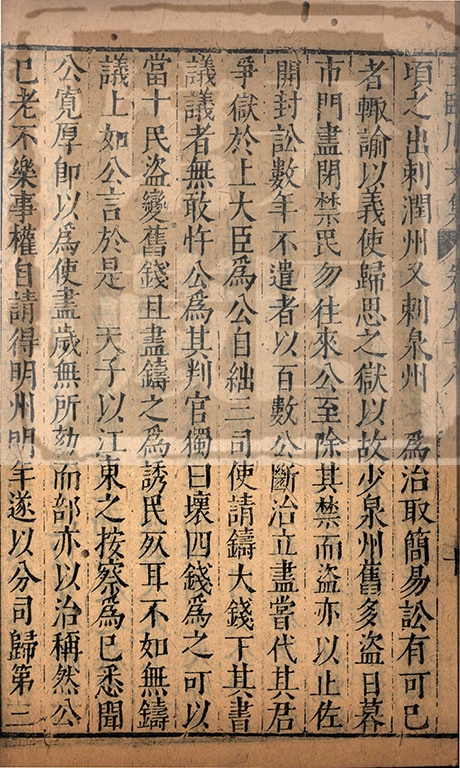 臨川文集 卷九十八
頃之出刺潤州又刺泉州 爲治取簡易訟有可已
者輙諭以義使歸思之獄以故少泉州舊多盜日暮
市門盡閉禁民勿往來公至除其禁而盜亦以止佐
開封訟數年不遣者以百數公斷治立盡當代其君
爭獄於上大臣爲公自絀三司使請鑄大錢下其書
議議者無敢忤公爲其判官獨曰壞四錢爲之可以
當十民盜變舊錢且盡鑄之爲誘民死耳不如無鑄
議上如公言於是 天子以江東之按察爲已悉聞
公寬厚卽以爲使盡歲無所劾而部亦以治稱然公
已老不樂事權自請得明州明年遂以分司歸第三